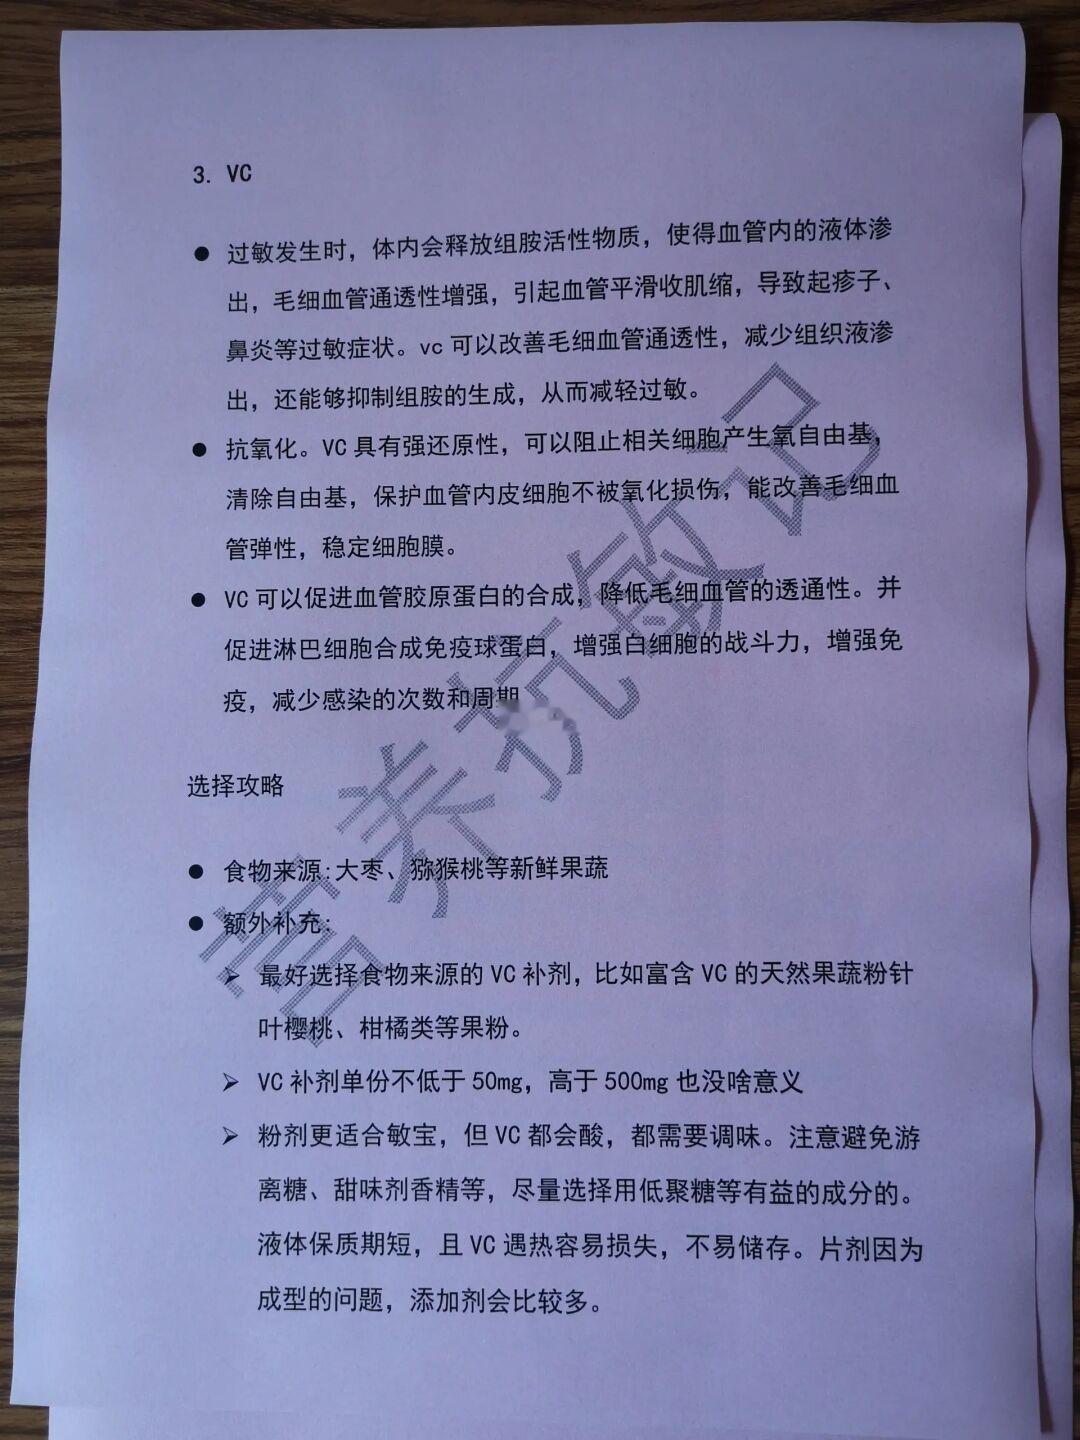 3. VC
● 过敏发生时，体内会释放组胺活性物质，使得血管内的液体渗
出，毛细血管通透性增强，引起血管平滑收肌缩，导致起疹子、
鼻炎等过敏症状。vc 可以改善毛细血管通透性，减少组织液渗
出，还能够抑制组胺的生成，从而减轻过敏。
● 抗氧化。VC 具有强还原性，可以阻止相关细胞产生氧自由基，
清除自由基，保护血管内皮细胞不被氧化损伤，能改善毛细血
管弹性，稳定细胞膜。
● VC 可以促进血管胶原蛋白的合成，降低毛细血管的透通性。并
促进淋巴细胞合成免疫球蛋白，增强白细胞的战斗力，增强免
疫，减少感染的次数和周期
选择攻略
● 食物来源:大枣、猕猴桃等新鲜果蔬
● 额外补充:
➢ 最好选择食物来源的 VC 补剂，比如富含 VC 的天然果蔬粉针
叶樱桃、柑橘类等果粉。
➢ VC 补剂单份不低于 50mg，高于 500mg 也没啥意义
➢ 粉剂更适合敏宝，但 VC 都会酸，都需要调味。注意避免游
离糖、甜味剂香精等，尽量选择用低聚糖等有益的成分的。
液体保质期短，且 VC 遇热容易损失，不易储存。片剂因为
成型的问题，添加剂会比较多。
营养抗敏记